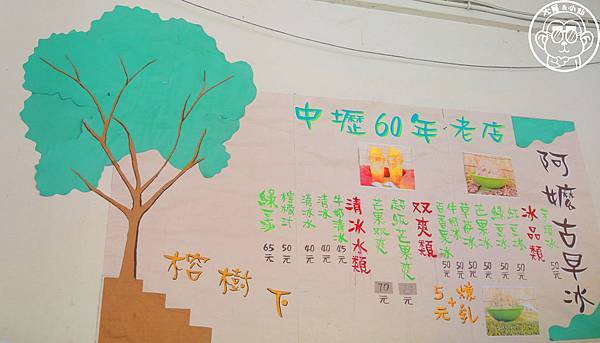 中壢60年老店
阿嬤古早冰
冰品類
芋頭冰 50元
紅豆冰 50元
綠豆冰 50元
芒果冰 50元
草莓冰 50元
牛奶冰 50元
百香果冰 50元
+煉乳5元
双爽類
超級芒果爽
芒果双爽 70元
清冰水類
牛奶清冰 45元
清冰 40元
清冰水 40元
檸檬汁 50元
綠豆 65元
榕樹下